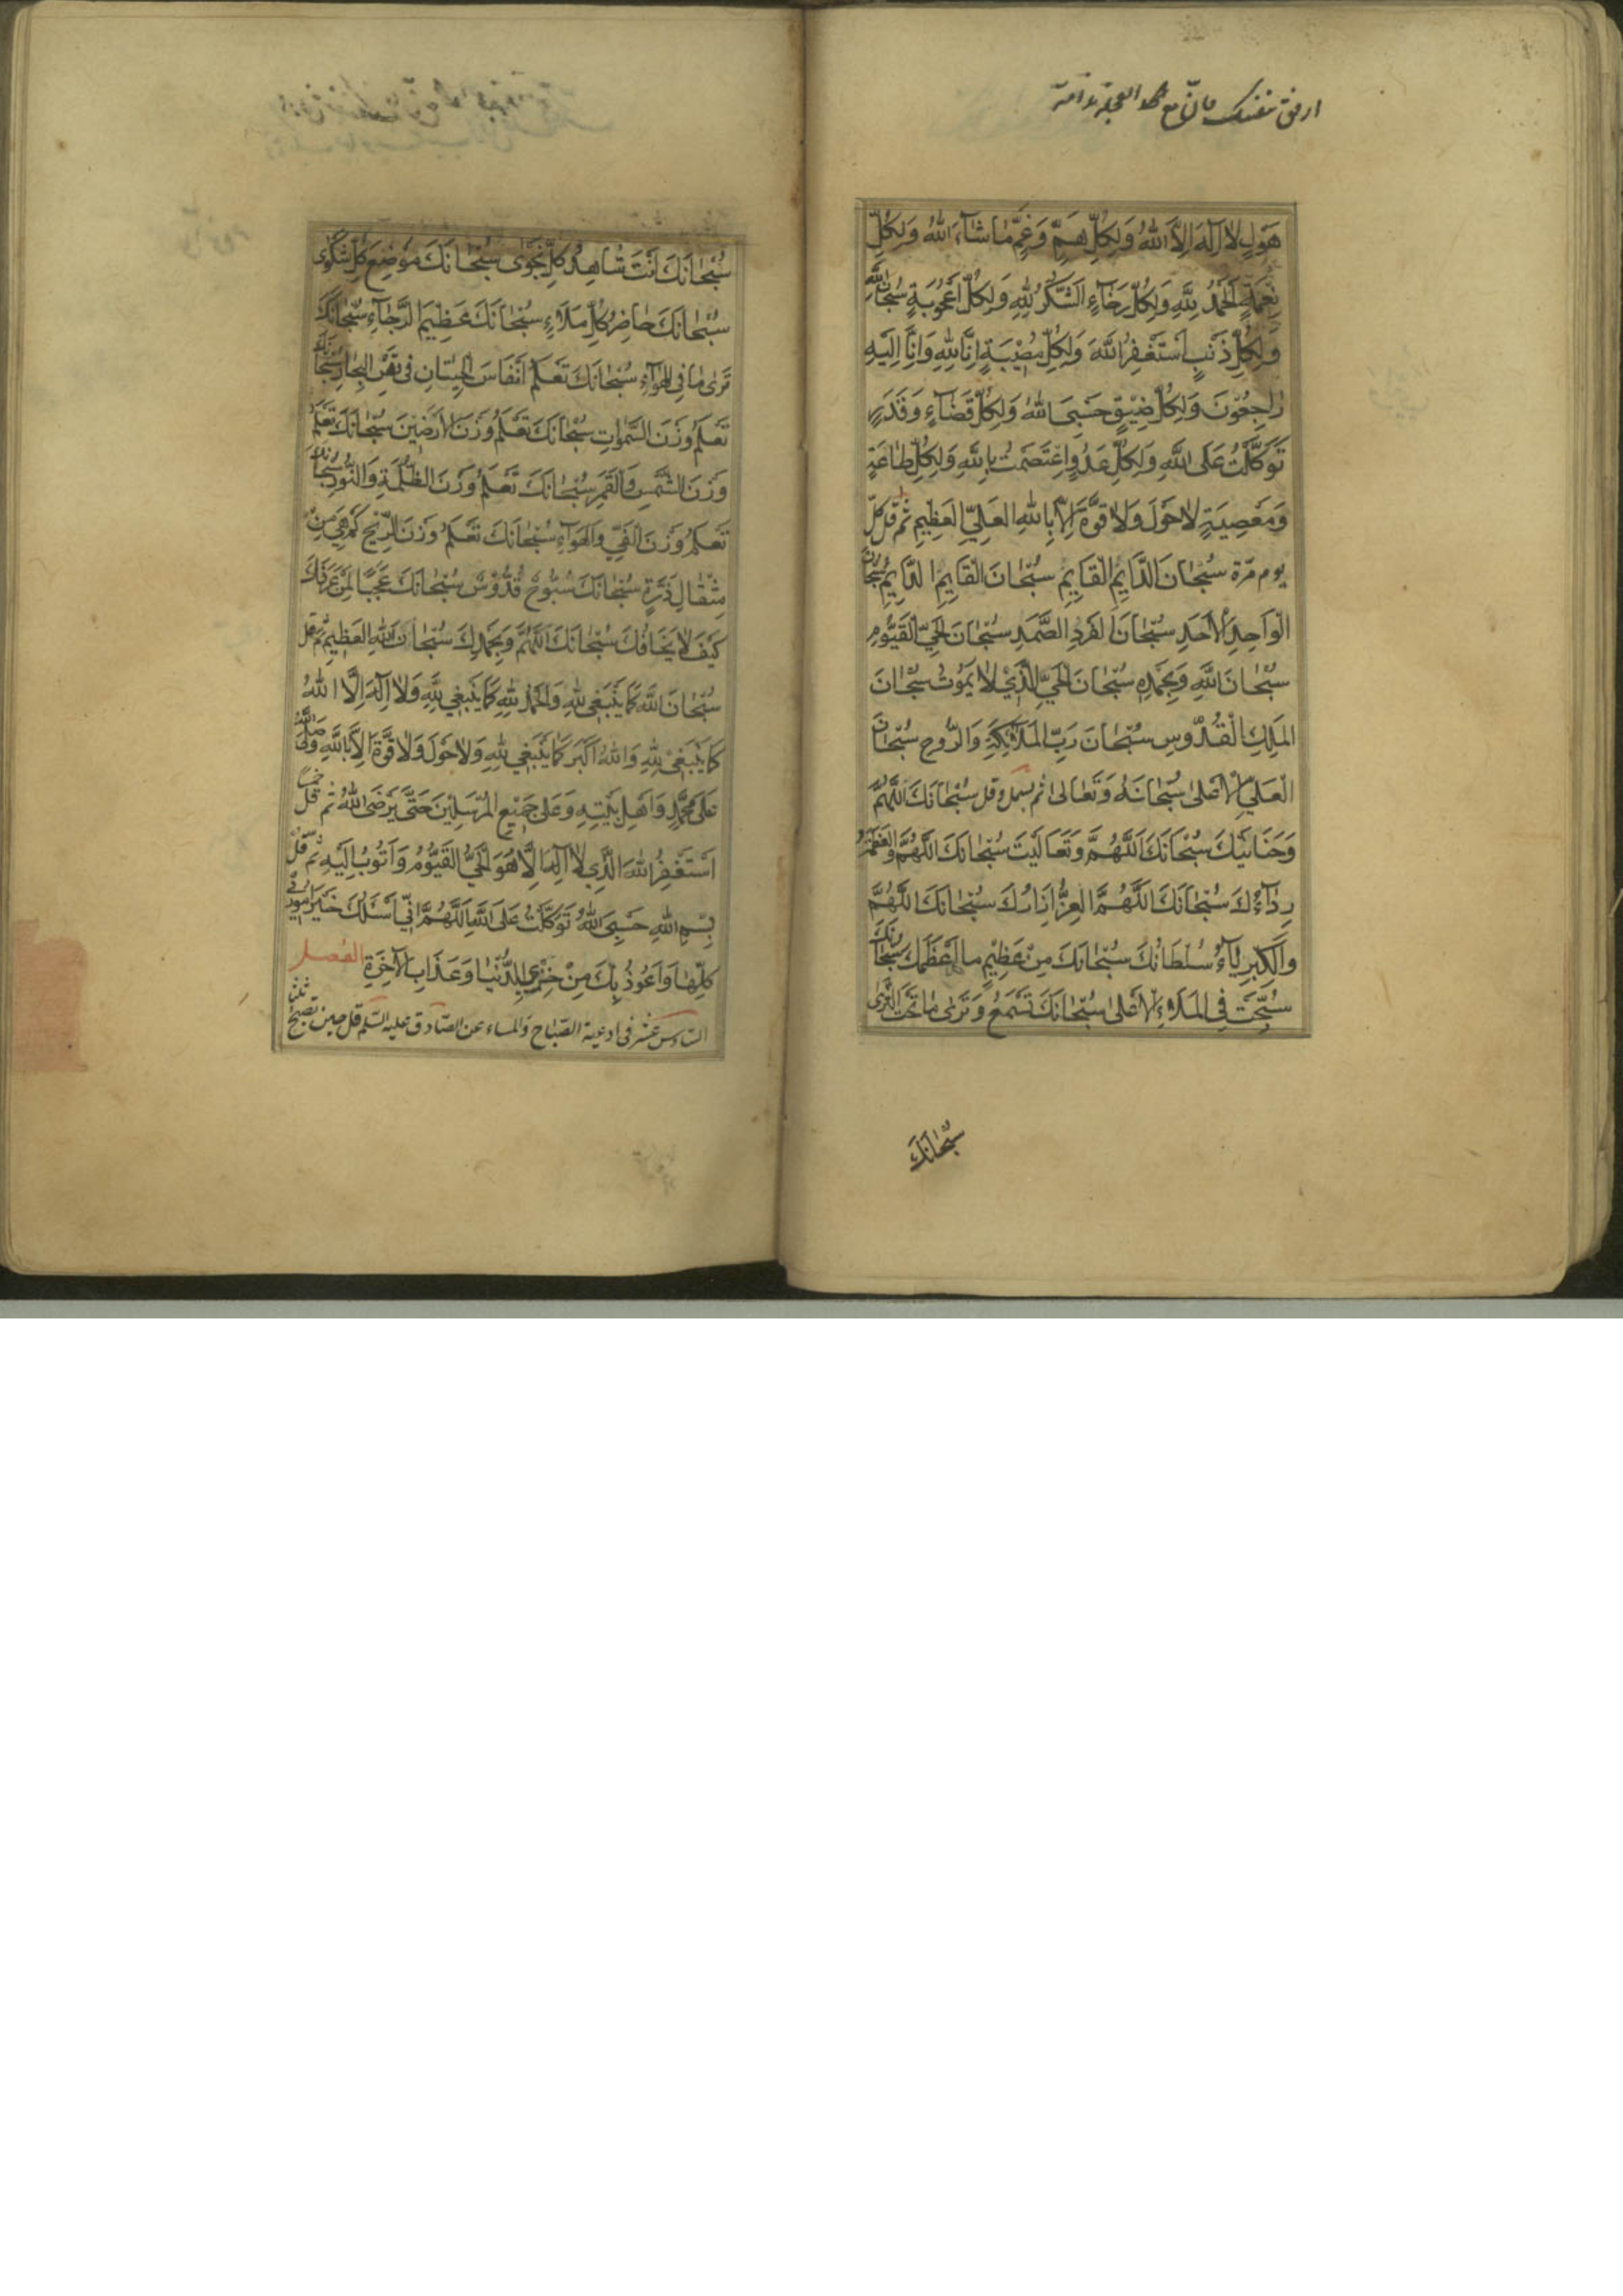 ارفق بنفسك فان مع العجلة ندامة
هَوْلٍ لا اِلٰهَ اِلَّا اللهُ وَلِكُلِّ هَمٍّ وَغَمٍّ مٰا شٰاءَ اللهُ وَلِكُلِّ
نِعْمَةٍ اَلْحَمْدُ لِلّٰهِ وَلِكُلِّ رَخٰاءٍ اَلشُّكْرُ لِلّٰهِ وَلِكُلِّ اُعْجُوبَةٍ سُبْحٰانَ اللهِ
وَلِكُلِّ ذَنْبٍ اَسْتَغْفِرُ اللهَ وَلِكُلِّ مُصيبَةٍ اِنّٰا لِلّٰهِ وَاِنّٰا اِلَيْهِ
رٰاجِعُونَ وَلِكُلِّ ضيقٍ حَسْبِيَ اللهُ وَلِكُلِّ قَضٰاءٍ وَقَدَرٍ
تَوَكَّلْتُ عَلَى اللهِ وَلِكُلِّ عَدُوٍّ اِعْتَصَمْتُ بِاللهِ وَلِكُلِّ طٰاعَةٍ
وَمَعْصِيَةٍ لا حَوْلَ وَلا قُوَّةَ اِلّا بِاللهِ العَلِيِّ العَظيمِ ثم قل كل
يوم مرة سُبْحٰانَ الدّٰايِمِ الْقٰايِمِ سُبْحٰانَ الْقٰايِمِ الدّٰايِمِ سُبْحٰانَ
الْوٰاحِدِ الْاَحَدِ سُبْحٰانَ الفَرْدِ الصَّمَدِ سُبْحٰانَ الحَيِّ القَيُّومِ
سُبْحٰانَ اللهِ وَبِحَمْدِهِ سُبْحٰانَ الْحَيِّ الَّذي لا يَمُوتُ سُبْحٰانَ
المَلِكِ الْقُدُّوسِ سُبْحٰانَ رَبِّ المَلٰائِكَةِ وَالرُّوحِ سُبْحٰانَ
الْعَلِيِّ الْاَعْلىٰ سُبْحٰانَهُ وَتَعٰالىٰ ثم بسمل وقل سُبْحٰانَكَ اللّٰهُمَّ
وَحَنٰانَيْكَ سُبْحٰانَكَ اللّٰهُمَّ وَتَعٰالَيْتَ سُبْحٰانَكَ اللّٰهُمَّ وَالعَظَمَةُ
رِدٰاؤُكَ سُبْحٰانَكَ اللّٰهُمَّ وَالعِزُّ اِزٰارُكَ سُبْحٰانَكَ اللّٰهُمَّ
وَالكِبْرِيٰاءُ سُلْطٰانُكَ سُبْحٰانَكَ مِنْ عَظيمٍ مٰا اَعْظَمَكَ سُبْحٰانَكَ
سُبِّحْتَ فِي المَلَاءِ الْاَعْلىٰ سُبْحٰانَكَ تَسْمَعُ وَتَرىٰ مٰا تَحْتَ الثَّرىٰ
سُبْحٰانَكَ
سُبْحٰانَكَ اَنْتَ شٰاهِدُ كُلِّ نَجْوىٰ سُبْحٰانَكَ مَوْضِعَ كُلِّ شَكْوىٰ
سُبْحٰانَكَ حٰاضِرُ كُلِّ مَلَاءٍ سُبْحٰانَكَ عَظيمَ الرَّجٰاءِ سُبْحٰانَكَ
تَرىٰ مٰا فِي الهَوٰاءِ سُبْحٰانَكَ تَعْلَمُ اَنْفٰاسَ الْحيتٰانِ في قَعْرِ البِحٰارِ سُبْحٰانَكَ
تَعْلَمُ وَزْنَ السَّمٰوٰاتِ سُبْحٰانَكَ تَعْلَمُ وَزْنَ الاَرَضينَ سُبْحٰانَكَ تَعْلَمُ
وَزْنَ الشَّمْسِ وَالقَمَرِ سُبْحٰانَكَ تَعْلَمُ وَزْنَ الظُّلْمَةِ وَالنُّورِ سُبْحٰانَكَ
تَعْلَمُ وَزْنَ الفَيْءِ وَالهَوٰاءِ سُبْحٰانَكَ تَعْلَمُ وَزْنَ الرّيحِ كَمْ هِيَ مِنْ
مِثْقٰالِ ذَرَّةٍ سُبْحٰانَكَ سُبُّوحٌ قُدُّوسٌ سُبْحٰانَكَ عَجَبًا لِمَنْ عَرَفَكَ
كَيْفَ لا يَخٰافُكَ سُبْحٰانَكَ اللّٰهُمَّ وَبِحَمْدِكَ سُبْحٰانَ اللهِ العَظيمِ ثم قل
سُبْحٰانَ اللهِ كَمٰا يَنْبَغي لِلّٰهِ وَالْحَمْدُ لِلّٰهِ كَمٰا يَنْبَغي لِلّٰهِ وَلا اِلٰهَ اِلَّا اللهُ
كَمٰا يَنْبَغي لِلّٰهِ وَاللهُ اَكْبَرُ كَمٰا يَنْبَغي لِلّٰهِ وَلا حَوْلَ وَلا قُوَّةَ اِلّا بِاللهِ وَصَلَّى اللهُ
عَلىٰ مُحَمَّدٍ وَاَهْلِ بَيْتِهِ وَعَلىٰ جَميعِ المُرْسَلينَ حَتّىٰ يَرْضَى اللهُ ثم قل خمسا
اَسْتَغْفِرُ اللهَ الَّذي لا اِلٰهَ اِلّا هُوَ الحَيُّ القَيُّومُ وَاَتُوبُ اِلَيْهِ ثم قل
بِسْمِ اللهِ حَسْبِيَ اللهُ تَوَكَّلْتُ عَلَى اللهِ اَللّٰهُمَّ اِنّي اَسْئَلُكَ خَيْرَ اُمُوري
كُلِّهٰا وَاَعُوذُ بِكَ مِنْ خِزْيِ الدُّنْيٰا وَعَذٰابِ الْاٰخِرَةِ الفصل
السادس عشر في ادعية الصباح والمساء عن الصادق عليه السلم قل حين تصبح ثلثا